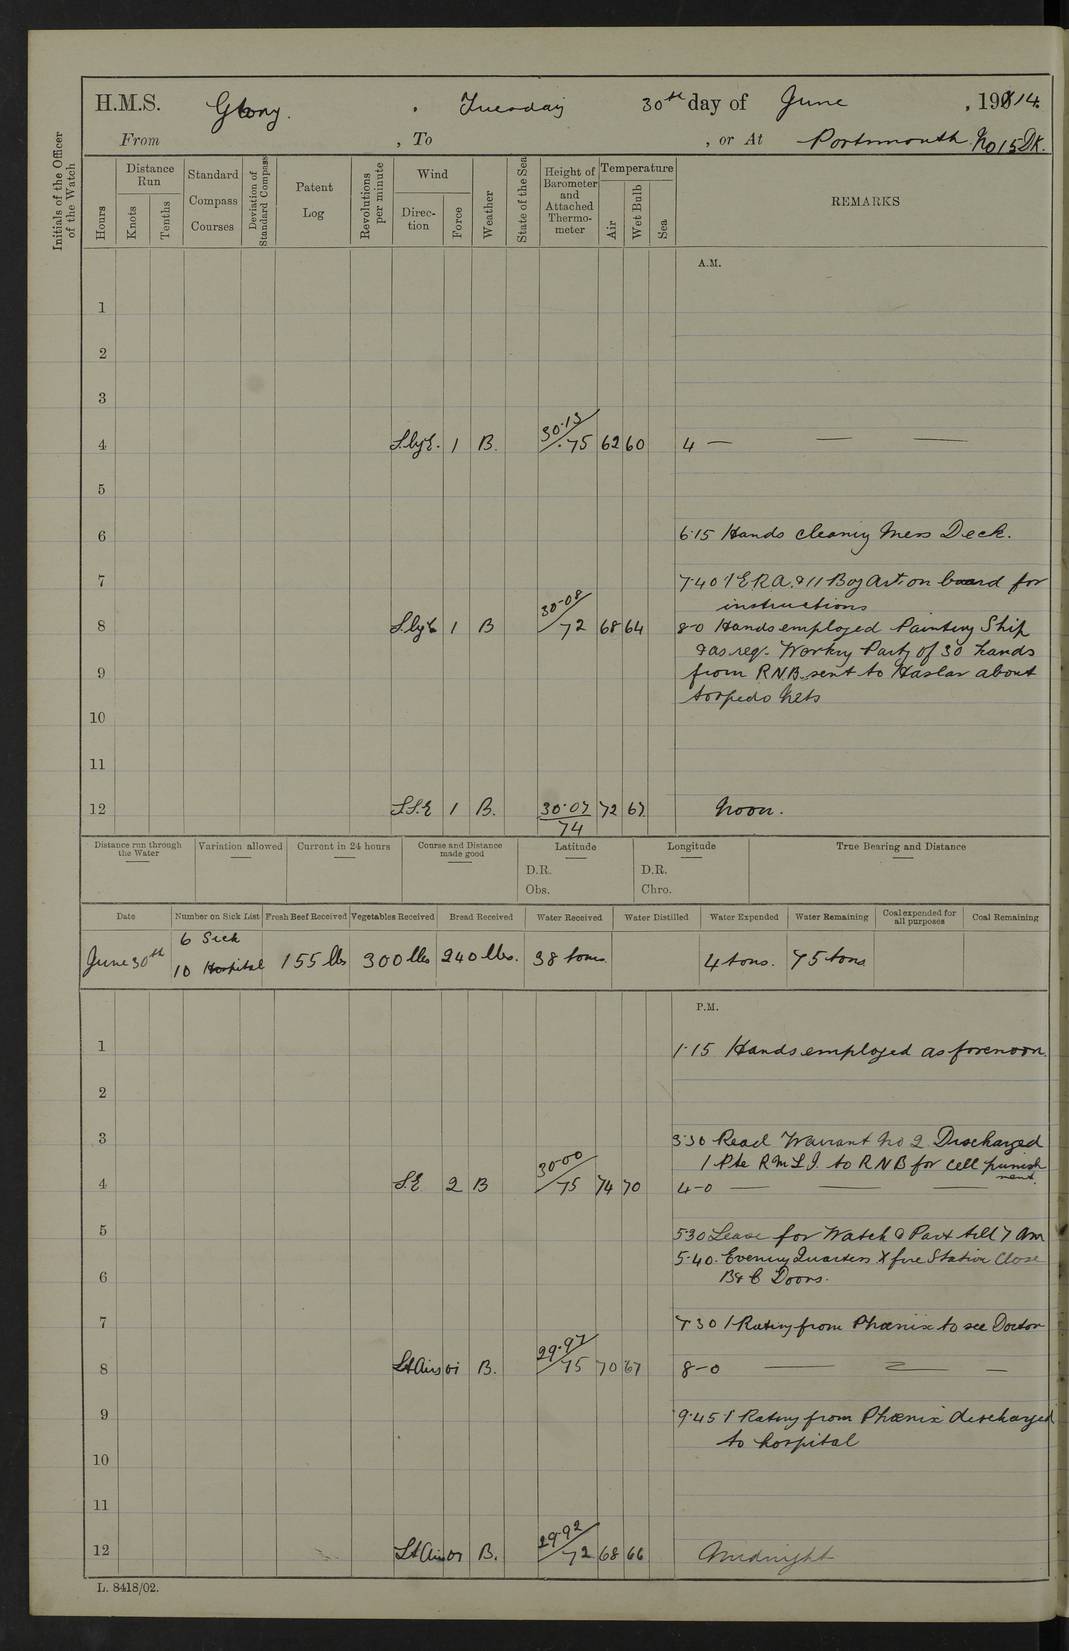 H.M.S. Glory. , Tuesday 30th day of June , 1914.
From , To , or At Portsmouth No 15 Dk.
Initials of the Officer of the Watch
Hours
Distance Run
Knots
Tenths
Standard Compass Courses
Deviation of Standard Compass
Patent Log
Revolutions per minute
Wind
Direction
Force
Weather
State of the Sea
Height of Barometer and Attached Thermometer
Temperature
Air
Wet Bulb
Sea
REMARKS
A.M.
1
2
3
4 S.byE. 1 B. 30.13/75 62 60 4 —
5
6 6.15 Hands cleaning Mess Deck.
7 7.40 1 E.R.A. & 11 Boy Art. on board for
instructions
8 S.byE 1 B 30.08/72 68 64 8-0 Hands employed Painting Ship
& as req. Working Party of 30 hands
9 from RNB sent to Haslar about
torpedo nets
10
11
12 S.S.E 1 B. 30.07/74 72 67 Noon.
Distance run through the Water
Variation allowed
Current in 24 hours
Course and Distance made good
Latitude
D.R.
Obs.
Longitude
D.R.
Chro.
True Bearing and Distance
Date Number on Sick List Fresh Beef Received Vegetables Received Bread Received Water Received Water Distilled Water Expended Water Remaining Coal expended for all purposes Coal Remaining
June 30th 6 Sick 10 Hospital 155 lbs 300 lbs 240 lbs. 38 tons 4 tons. 75 tons
P.M.
1 1.15 Hands employed as forenoon.
2
3 3.30 Read Warrant No 2. Discharged
1 Pte R.M.L.I. to RNB for cell punishment.
4 S.E 2 B 30.00/75 74 70 4-0 —
5 5.30 Leave for Watch & Part till 7 am
5.40. Evening Quarters X fire Station Close
6 B & C Doors.
7 7.30 1 Rating from Phœnix to see Doctor
8 Lt Airs 01 B. 29.97/75 70 67 8-0 —
9 9.45 1 Rating from Phœnix discharged
to hospital
10
11
12 Lt Airs 01 B. 29.92/72 68 66 Midnight
L. 8418/02.